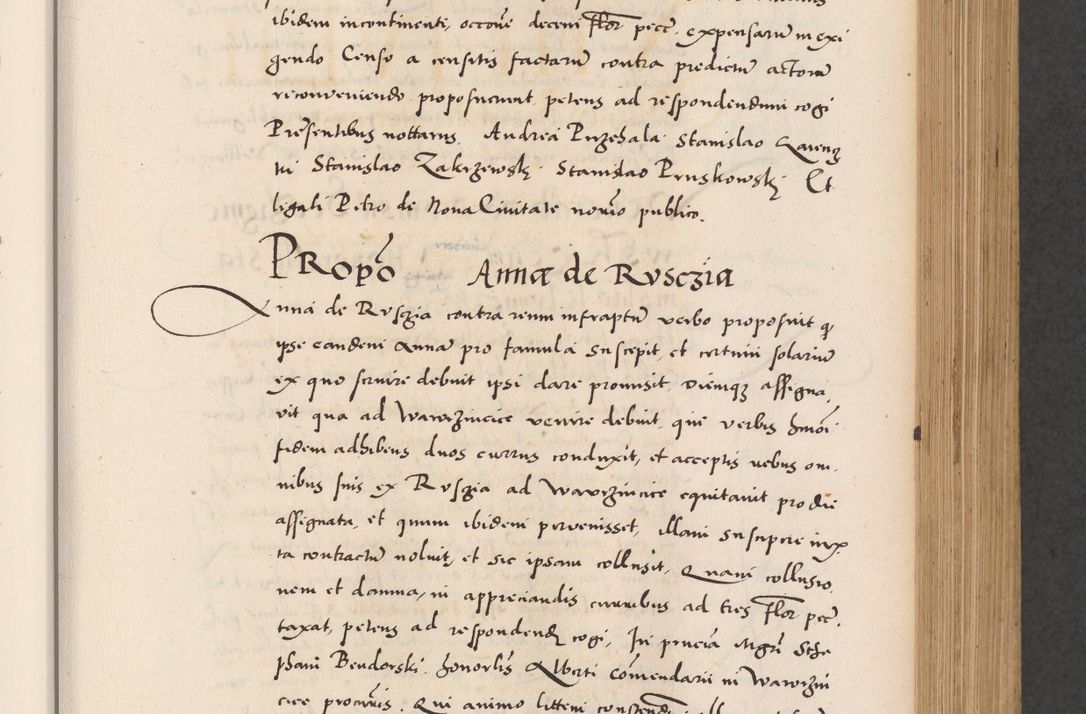 ibidem incontinenti, occōne decem flor pecē. expensarū in exi
gendo Censo a censitis factarū contra predictū actorem
reconveniendo proposuerunt petens ad respondendum cogi
Presentibus nottarus Andrea Przezhala Stanislao
Stanislao Zakrzewskj Stanislao Pruskowskj Et
ligali Petro de Nova Civitate norīo publico.
PRopō Annæ de Rvsczia
Anna de Rvsczia contra reum infraptū verbo proposuit q
ipse eandem Annā pro famula suscepit, et certum solariū
ex quo servire debuit ipsi dare promisit, diemqz assigna,
vit qua ad Wawrzincice venire debuit, que verbis hmōi
fidem adhibens duos currus conduxit, et acceptis rebus om,
nibus suis ex Rvsczia ad Wawrzincice equitavit pro die
assignata, et quum ibidem pervenisset, illam suscipere iux
ta contractū noluit, et sic ipsam collusit, Quam collusio,
nem et damna, in appreciandis curribus ad tres flor pecē,
taxat, petens ad respondend cogi, In pñcia Mgri Ste
phani Bendorski, honorlis Alberti Cōmendarii in Wawrzin
cice Qui animo litem